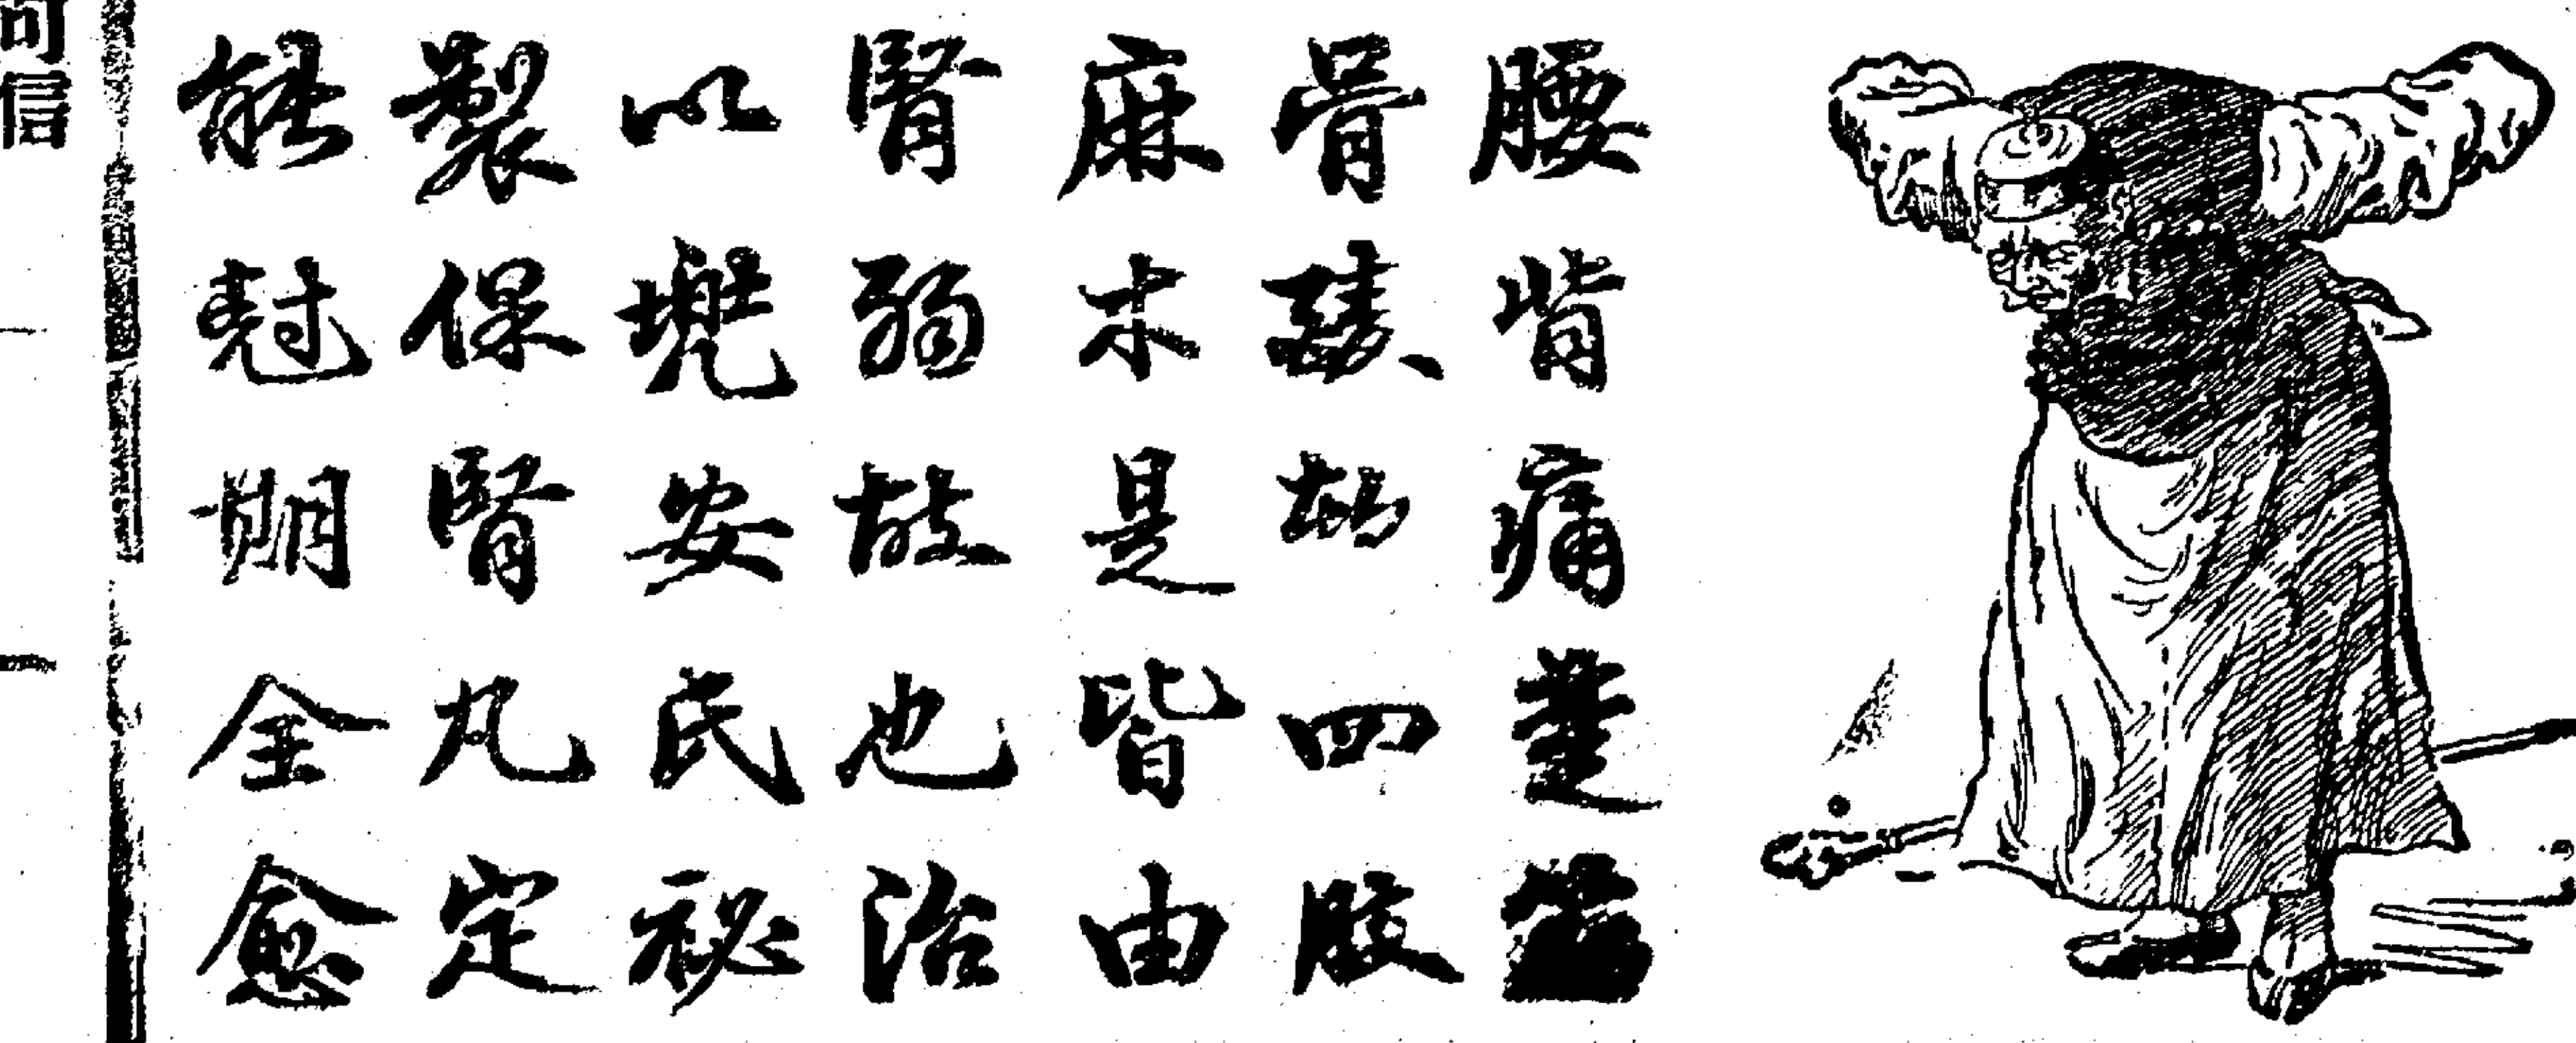 腰背痛楚
骨四肢
麻木是皆由
腎弱故也治
以兜安氏祕
製保腎丸定
能尅期全愈
可信